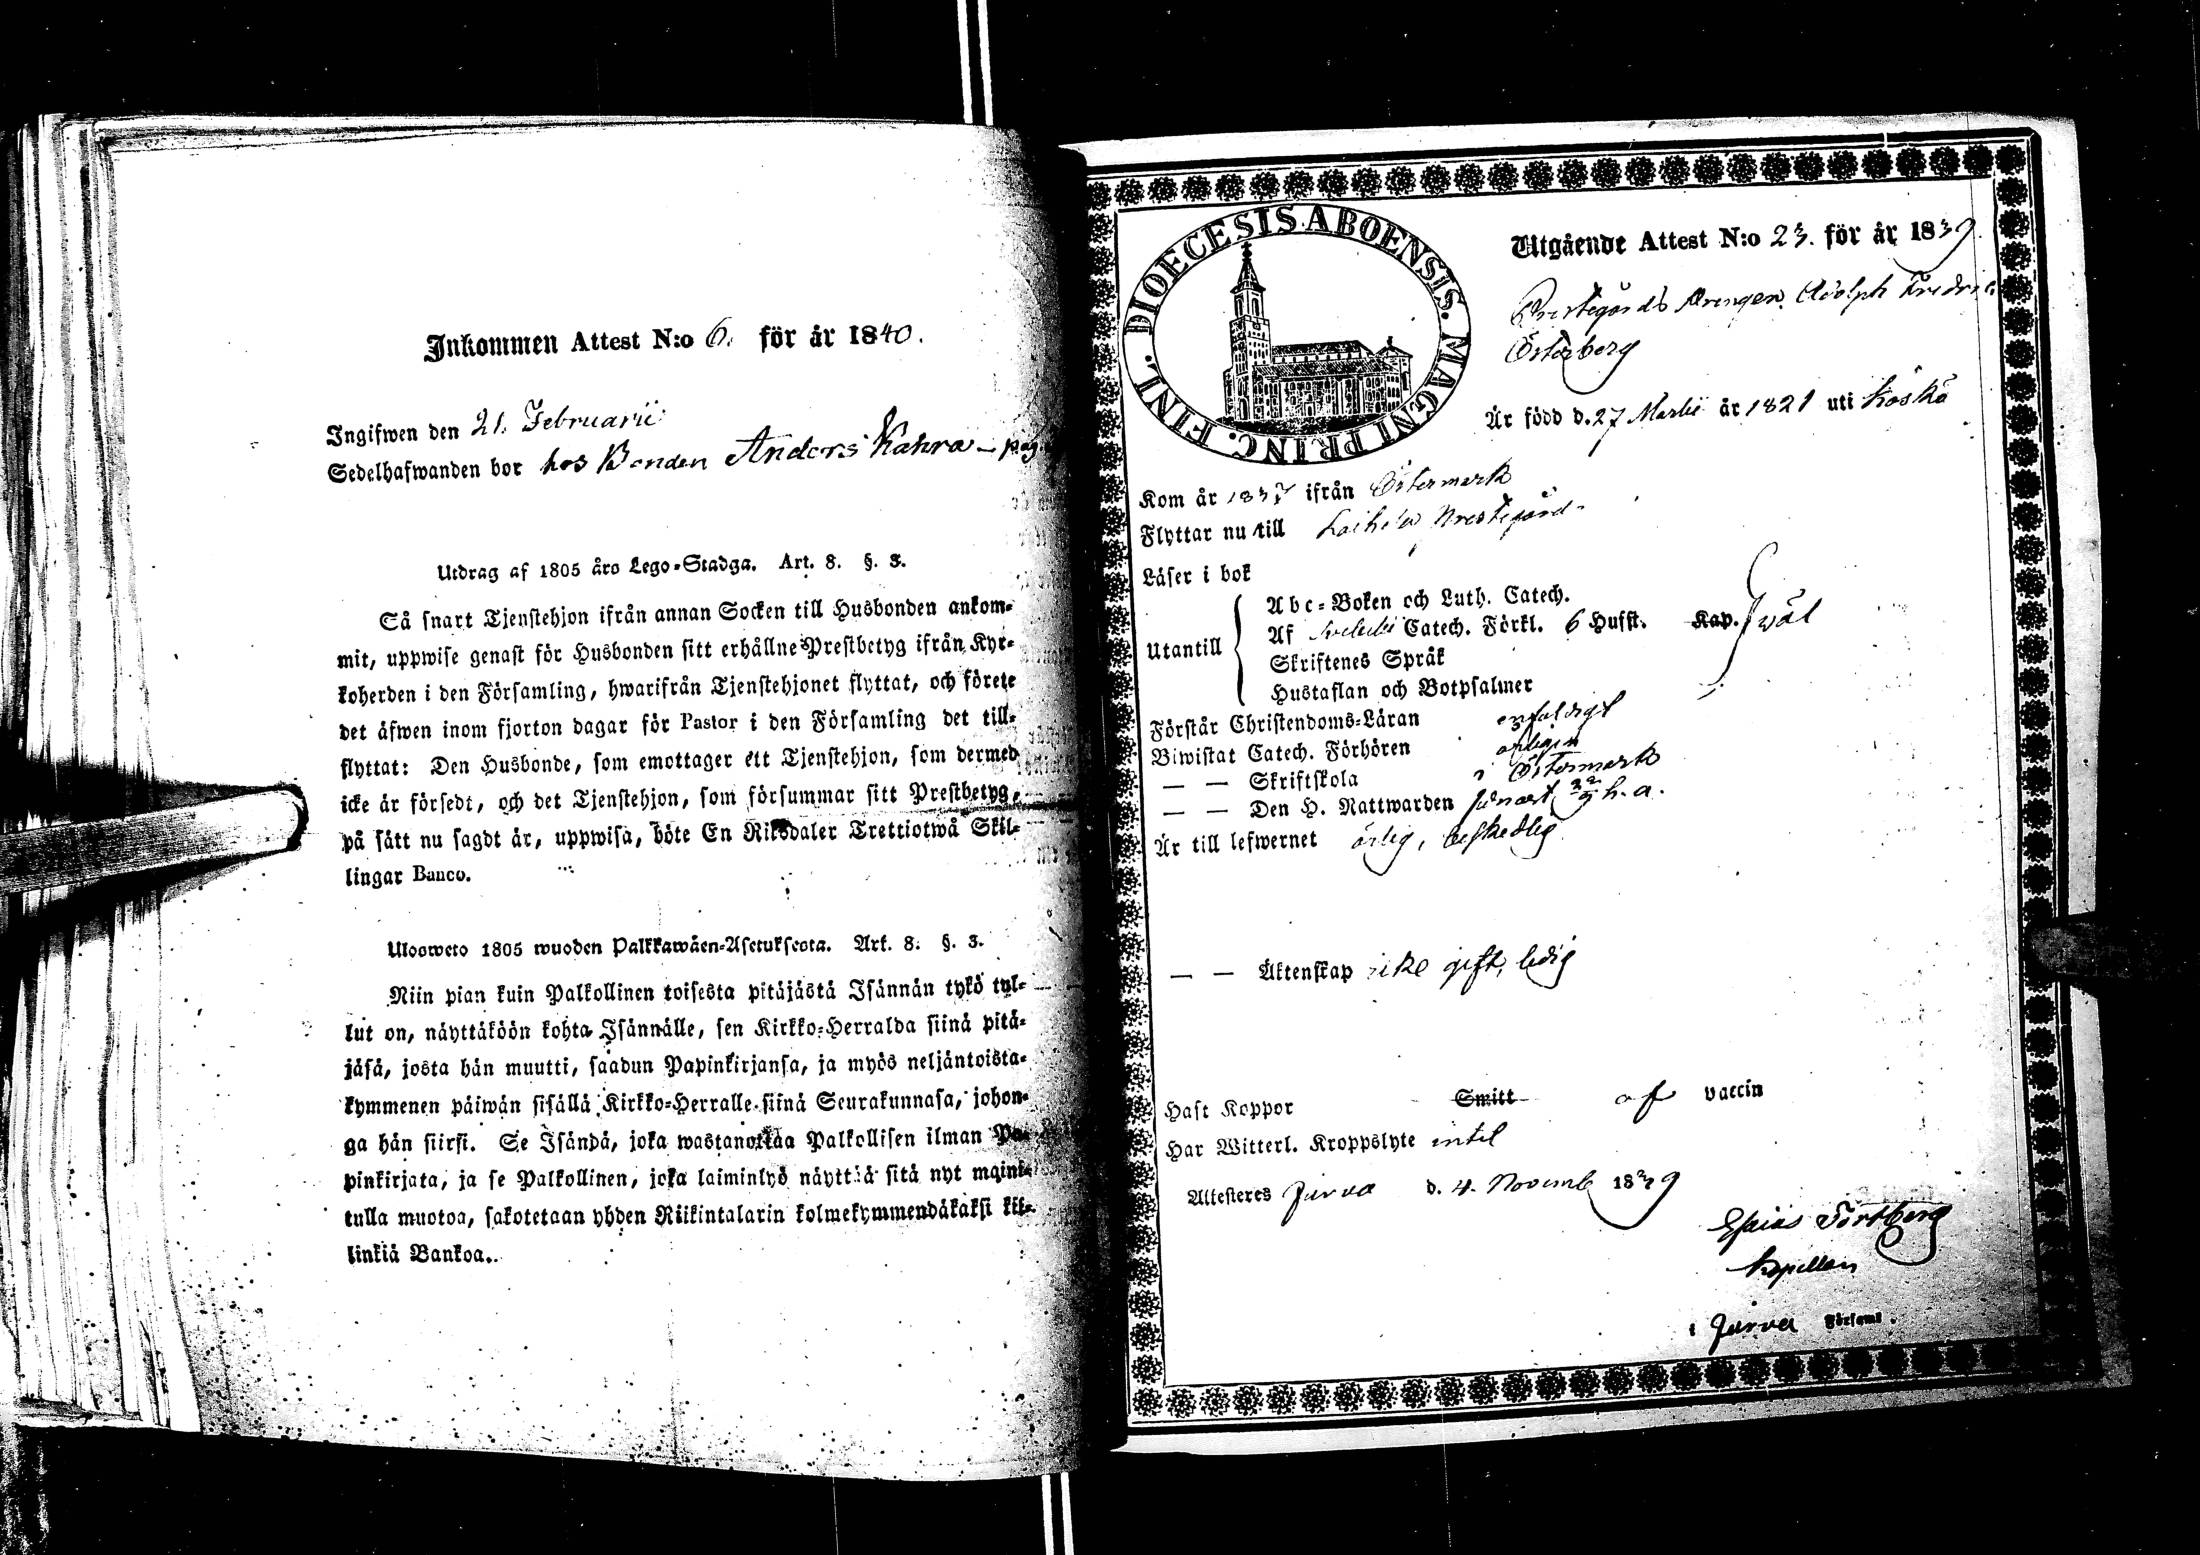 Inkommen Attest N:o 6. för år 1840.
Ingifwen den 21. Februarii
Sedelhafwanden bor hos Bonden Anders Kahra – pag.
Utdrag af 1805 års Lego-Stadga. Art. 8. §. 3.
Så snart Tjenstehjon ifrån annan Socken till Husbonden ankom-
mit, uppwise genast för Husbonden sitt erhållne Prestbetyg ifrån Kyr-
koherden i den Församling, hwarifrån Tjenstehjonet flyttat, och förete
det äfwen inom fjorton dagar för Pastor i den Församling det till-
flyttat: Den Husbonde, som emottager ett Tjenstehjon, som dermed
icke är försedt, och det Tjenstehjon, som försummar sitt Prestbetyg,
på sätt nu sagdt är, uppwisa, böte En Riksdaler Trettiotwå Skil-
lingar Banco.
Ulosweto 1805 wuoden Palkkawäen-Asetuksesta. Art. 8. §. 3.
Niin pian kuin Palkollinen toisesta pitäjästä Isännän tykö tul-
lut on, näyttäköön kohta Isännälle, sen Kirkko-Herralda siinä pitä-
jäsä, josta hän muutti, saadun Papinkirjansa, ja myös neljäntoista-
kymmenen päiwän sisällä Kirkko-Herralle siinä Seurakunnasa, johon-
ga hän siirsi. Se Isändä, joka wastanottaa Palkollisen ilman Pa-
pinkirjata, ja se Palkollinen, joka laiminlyö näyttää sitä nyt mainit-
tulla muotoa, sakotetaan yhden Riikintalarin kolmekymmendäkaksi kil-
linkiä Bankoa.
DIOECESIS ABOENSIS. MAGNI PRINC. FINL.
Utgående Attest N:o 23. för år 1839
Prestegårds Drengen Adolph Fredric
Österberg
Är född d. 27 Martii år 1821 uti Koskö
Kom år 1837 ifrån Östermark
Flyttar nu till Laihela Prestegård
Läser i bok
Utantill
Abc-Boken och Luth. Catech.
Af Catech. Förkl. 6 Husst. Kap. wäl
Skriftenes Språk
Hustaflan och Botpsalmer
Förstår Christendoms-Läran enfaldigt
Biwistat Catech. Förhören årligen
— — Skriftskola i Östermark
— — Den H. Nattwarden h. a.
Är till lefwernet ärlig, beskedlig
— — Äktenskap icke gift, ledig
Haft Koppor Smitt af vaccin
Har Witterl. Kroppslyte intet
Attesteres Jurva d. 4. Novemb 1839
Esaias Forsberg
Kapellan
i Jurva Församl.